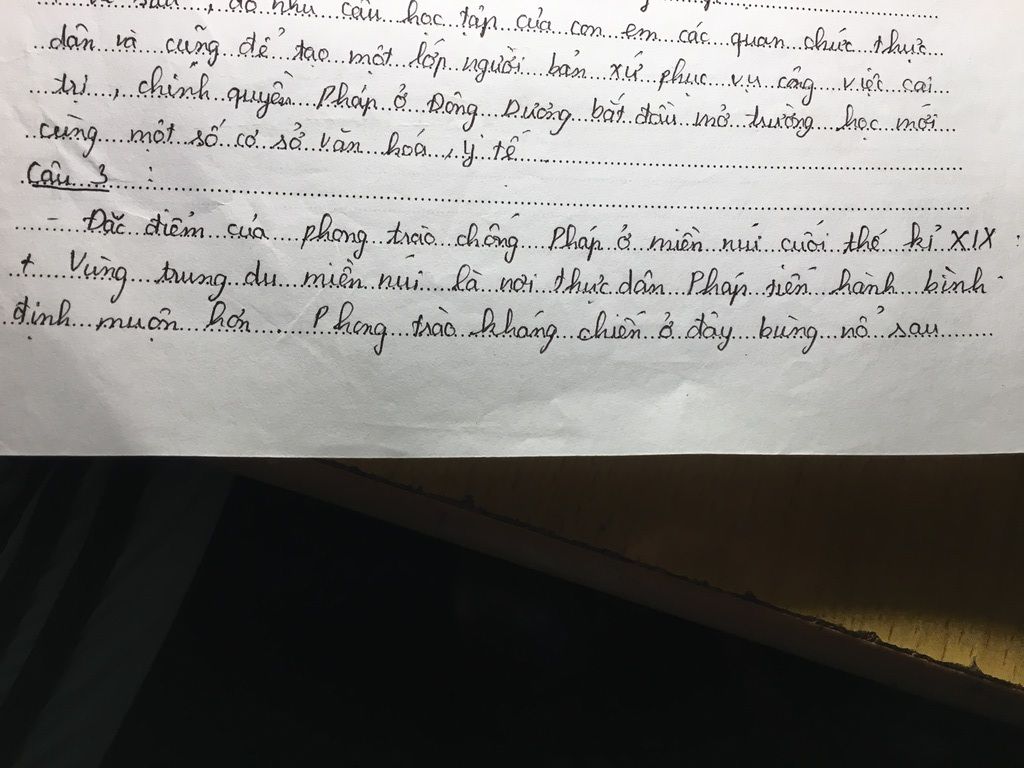 sau, do nhu cầu học tập của con em các quan chức thực
dân và cũng để tạo một lớp người bản xứ phục vụ công việc cai
trị, chính quyền Pháp ở Đông Dương bắt đầu mở trường học mới
cùng một số cơ sở văn hoá, y tế
Câu 3 :
- Đặc điểm của phong trào chống Pháp ở miền núi cuối thế kỉ XIX :
+ Vùng trung du miền núi là nơi thực dân Pháp tiến hành bình
định muộn hơn Phong trào kháng chiến ở đây bùng nổ sau